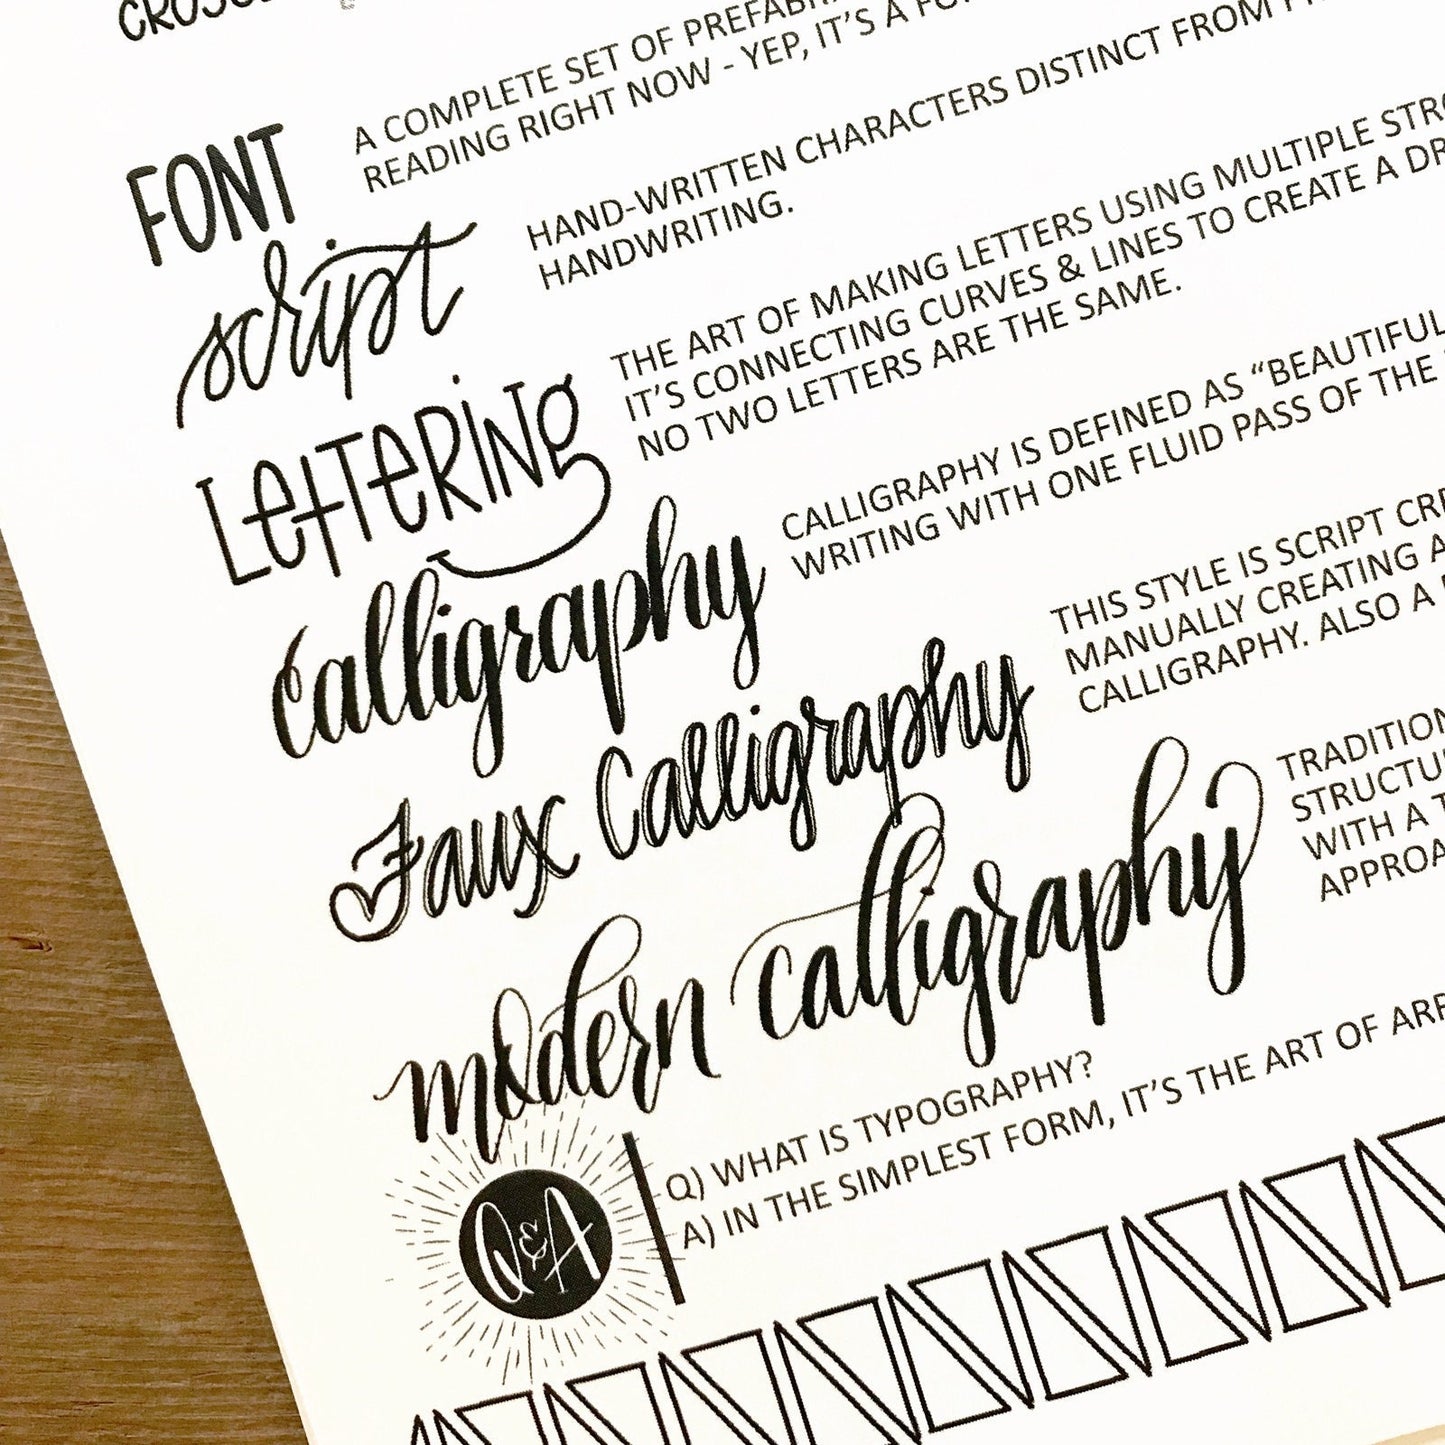 FONT
A COMPLETE SET OF
READING RIGHT NOW - YEP, IT'S A
script
HAND-WRITTEN CHARACTERS DISTINCT FROM
HANDWRITING.
LETTERING
THE ART OF MAKING LETTERS USING MULTIPLE
IT'S CONNECTING CURVES & LINES TO CREATE A
NO TWO LETTERS ARE THE SAME.
Calligraphy
CALLIGRAPHY IS DEFINED AS “BEAUTIFUL
WRITING WITH ONE FLUID PASS OF THE
Faux Calligraphy
THIS STYLE IS SCRIPT
MANUALLY CREATING A
CALLIGRAPHY. ALSO A
modern calligraphy
WITH A
Q&A
Q) WHAT IS TYPOGRAPHY?
A) IN THE SIMPLEST FORM, IT'S THE ART OF